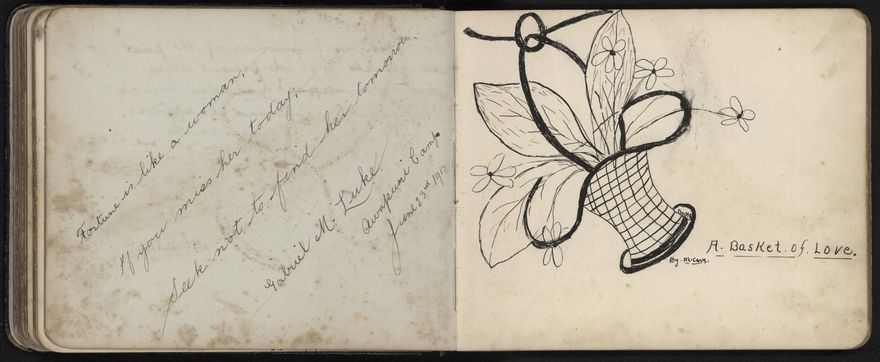 Fortune is like a woman,
If you miss her today;
Seek not to find her tomorrow.
Gabriel M. Luke
Awapuni Camp
June 23rd 191
A. Basket. of. Love.
By.